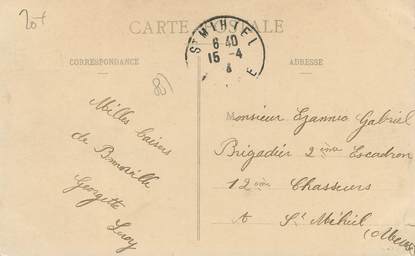 20+
CARTE POSTALE
CORRESPONDANCE
ADRESSE
ST MIHIEL
6 40
15 - 4
Milles baisers
de
Georgette
Leroy
Monsieur Gabriel
Brigadier 2ème Escadron
12ème Chasseurs
A St Mihiel
(Meuse)